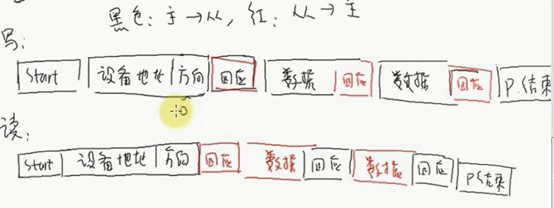 黑色：主→从，红：从→主
写：
Start 设备地址 方向 回应 数据 回应 数据 回应 P.结束
读：
Start 设备地址 方向 回应 数据 回应 数据 回应 P结束